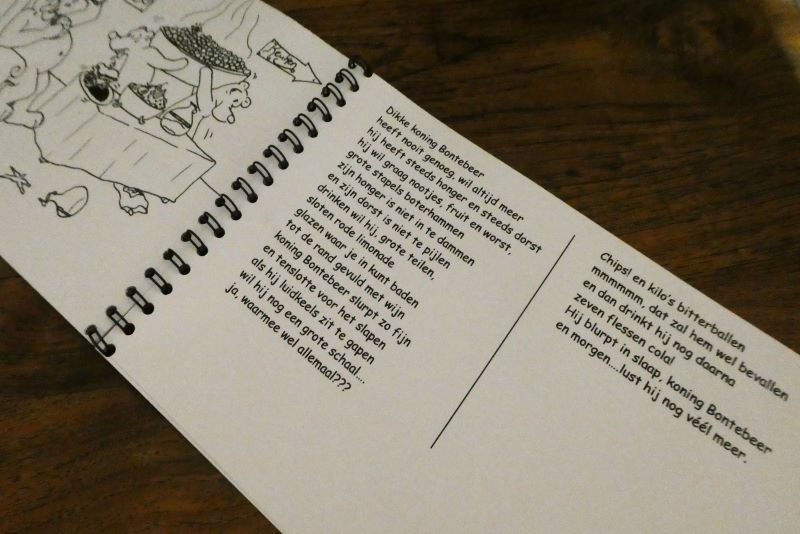 Dikke koning Bontebeer
heeft nooit genoeg, wil altijd meer
hij heeft steeds honger en steeds dorst
hij wil graag nootjes, fruit en worst,
grote stapels boterhammen
zijn honger is niet in te dammen
en zijn dorst is niet te pijlen
drinken wil hij, grote teilen,
sloten rode limonade
glazen waar je in kunt baden
tot de rand gevuld met wijn
koning Bontebeer slurpt zo fijn
en tenslotte voor het slapen
als hij luidkeels zit te gapen
wil hij nog een grote schaal....
ja, waarmee wel allemaal???
Chips! en kilo's bitterballen
mmmmmm, dat zal hem wel bevallen
en dan drinkt hij nog daarna
zeven flessen cola!
Hij blurpt in slaap, koning Bontebeer
en morgen....lust hij nog véél meer.